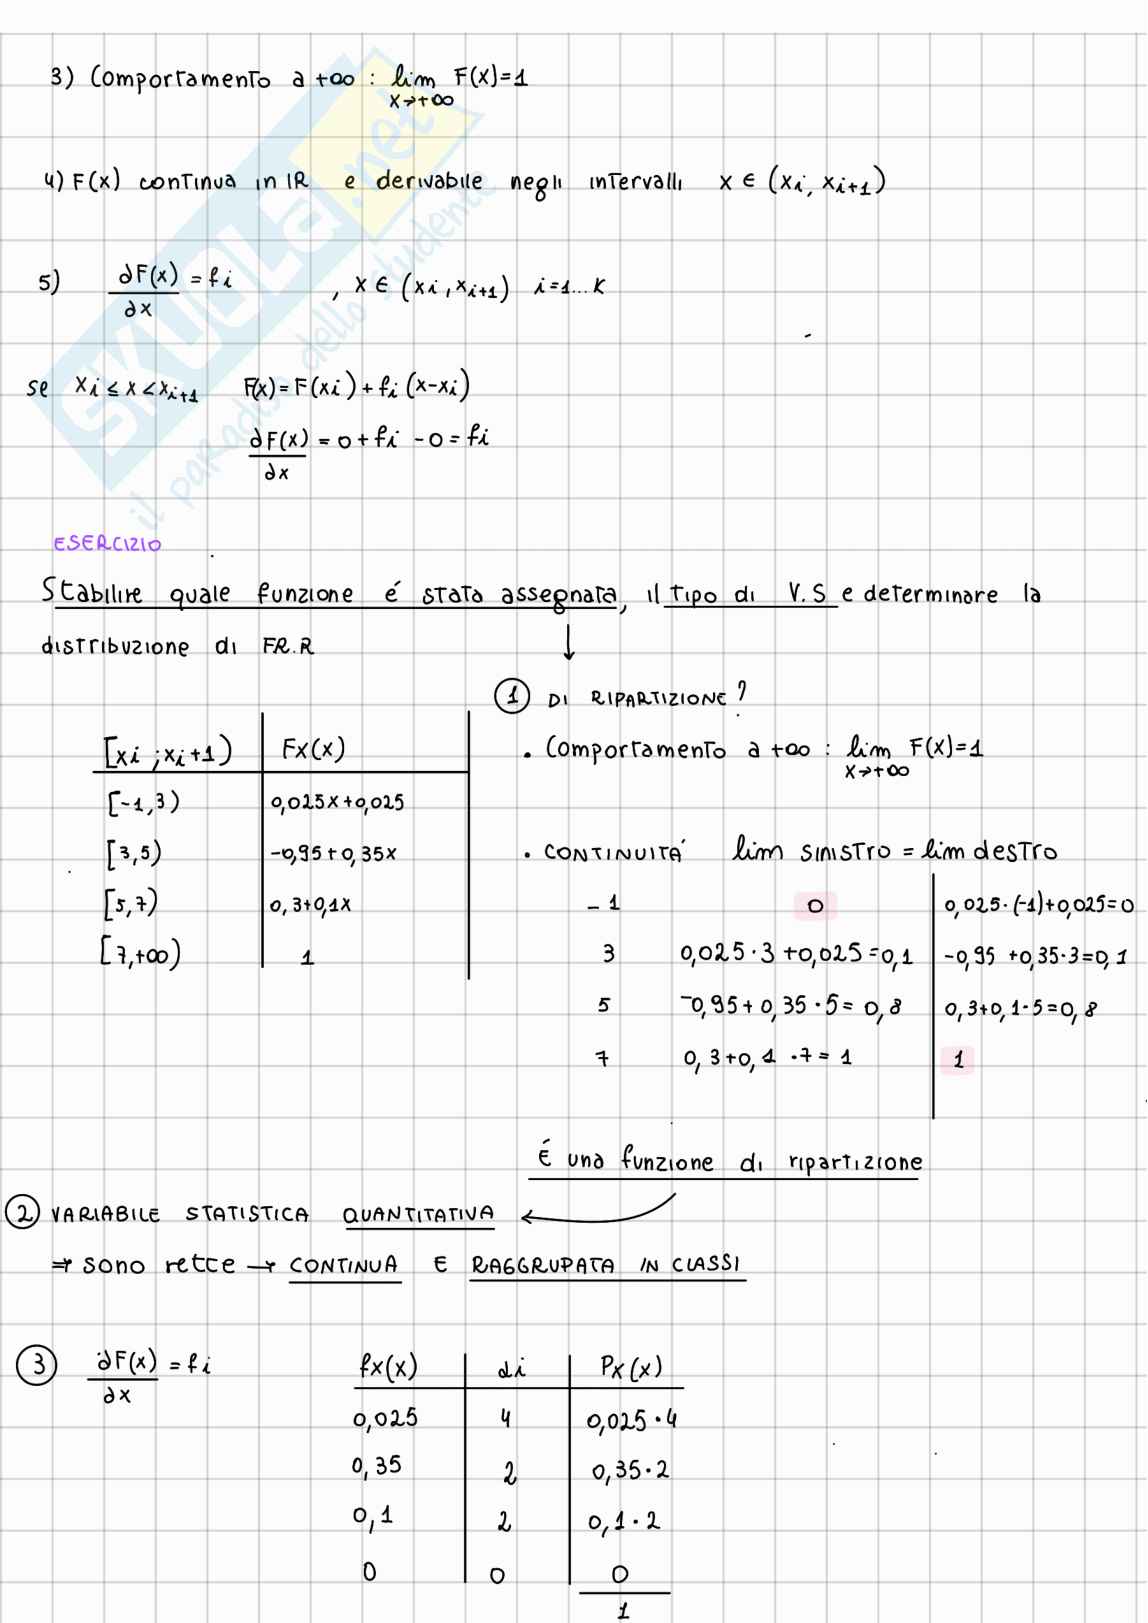 3) Comportamento a +∞ : lim F(x)=1
x→+∞
4) F(x) continua in IR e derivabile negli intervalli x ∈ (xi, xi+1)
5) ∂F(x) = fi , x ∈ (xi, xi+1) i=1...K
∂x
se xi ≤ x < xi+1 F(x) = F(xi) + fi (x-xi)
∂F(x) = 0 + fi - 0 = fi
∂x
SKUOLa.net
il paradiso dello studente
ESERCIZIO
Stabilire quale funzione é stata assegnata, il tipo di V.S e determinare la
distribuzione di FR.R
① DI RIPARTIZIONE?
[xi ; xi+1) | Fx(x)
[-1,3) | 0,025x+0,025
[3,5) | -0,95+0,35x
[5,7) | 0,3+0,1x
[7,+∞) | 1
• Comportamento a +∞ : lim F(x)=1
x→+∞
• CONTINUITÀ lim SINISTRO = lim DESTRO
-1 0 | 0,025·(-1)+0,025=0
3 0,025·3+0,025=0,1 | -0,95+0,35·3=0,1
5 -0,95+0,35·5=0,8 | 0,3+0,1·5=0,8
7 0,3+0,1·7=1 | 1
É una funzione di ripartizione
② VARIABILE STATISTICA QUANTITATIVA ←
⇒ sono rette → CONTINUA E RAGGRUPATA IN CLASSI
③ ∂F(x) = fi
∂x
fx(x) | di | Px(x)
0,025 | 4 | 0,025·4
0,35 | 2 | 0,35·2
0,1 | 2 | 0,1·2
0 | 0 | 0
1